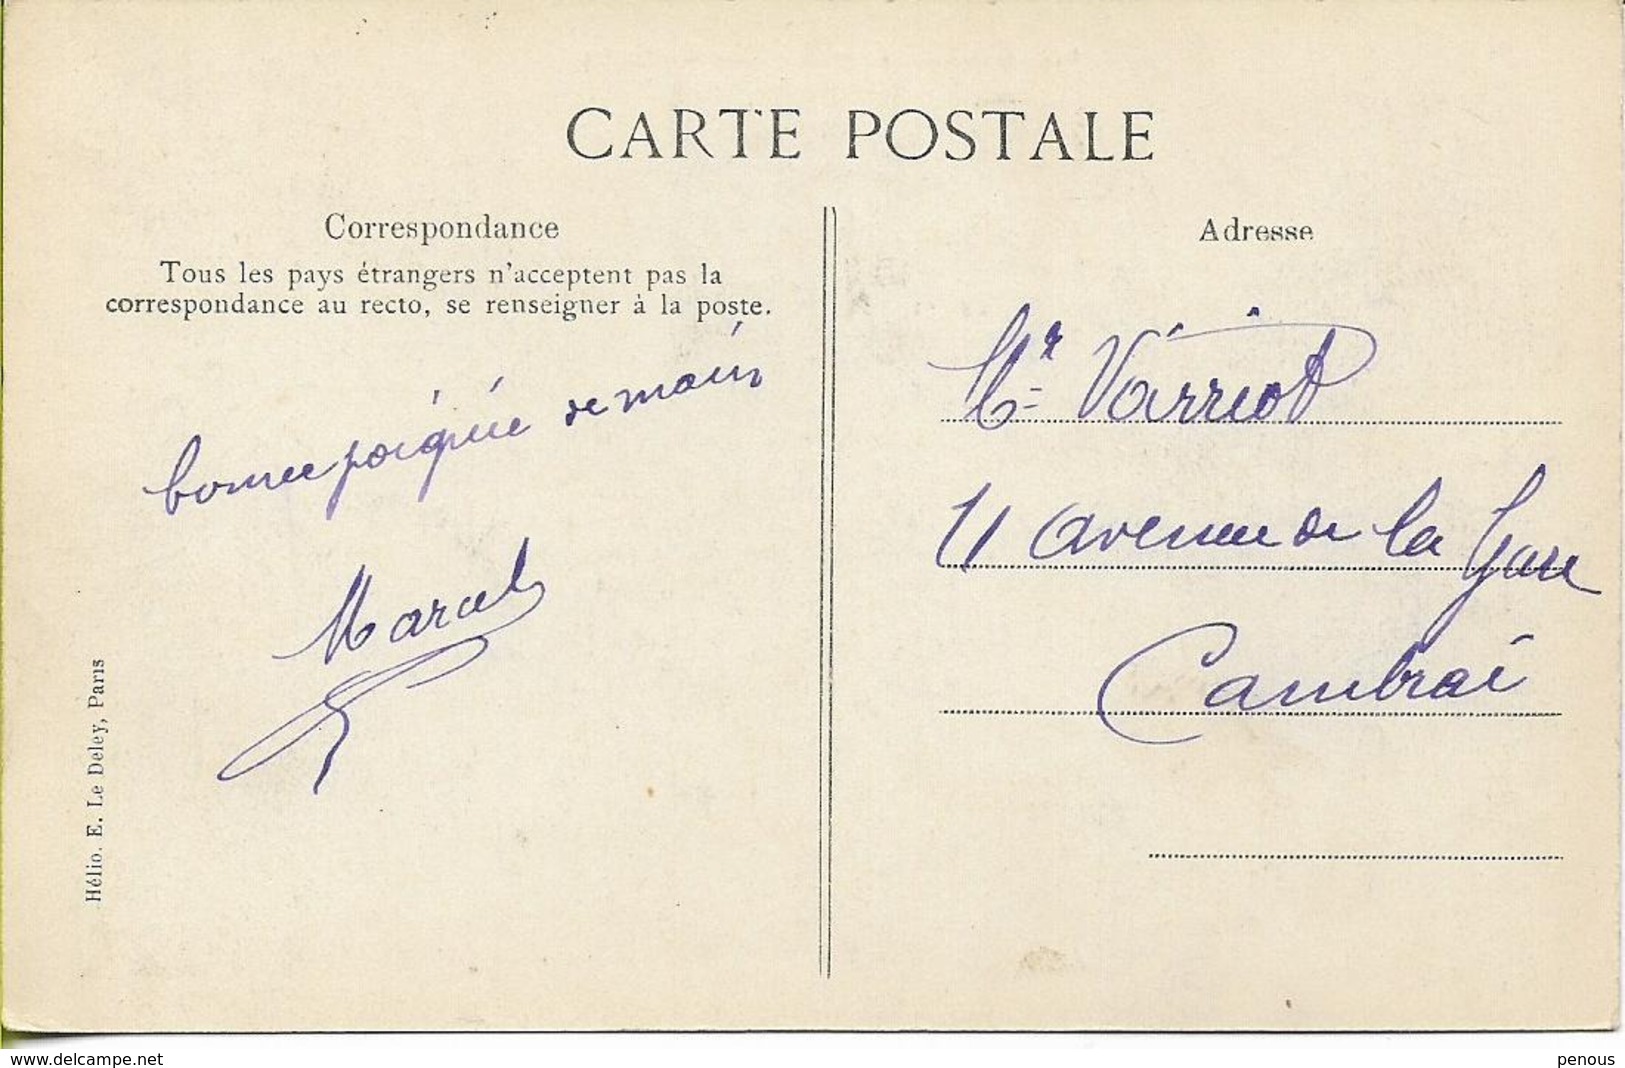 CARTE POSTALE
Correspondance
Tous les pays étrangers n'acceptent pas la
correspondance au recto, se renseigner à la poste.
bonne poignée de main
Marcel
Hélio. E. Le Deley, Paris
Adresse
Mr Varriot
11 avenue de la Gare
Cambrai
www.delcampe.net
penous